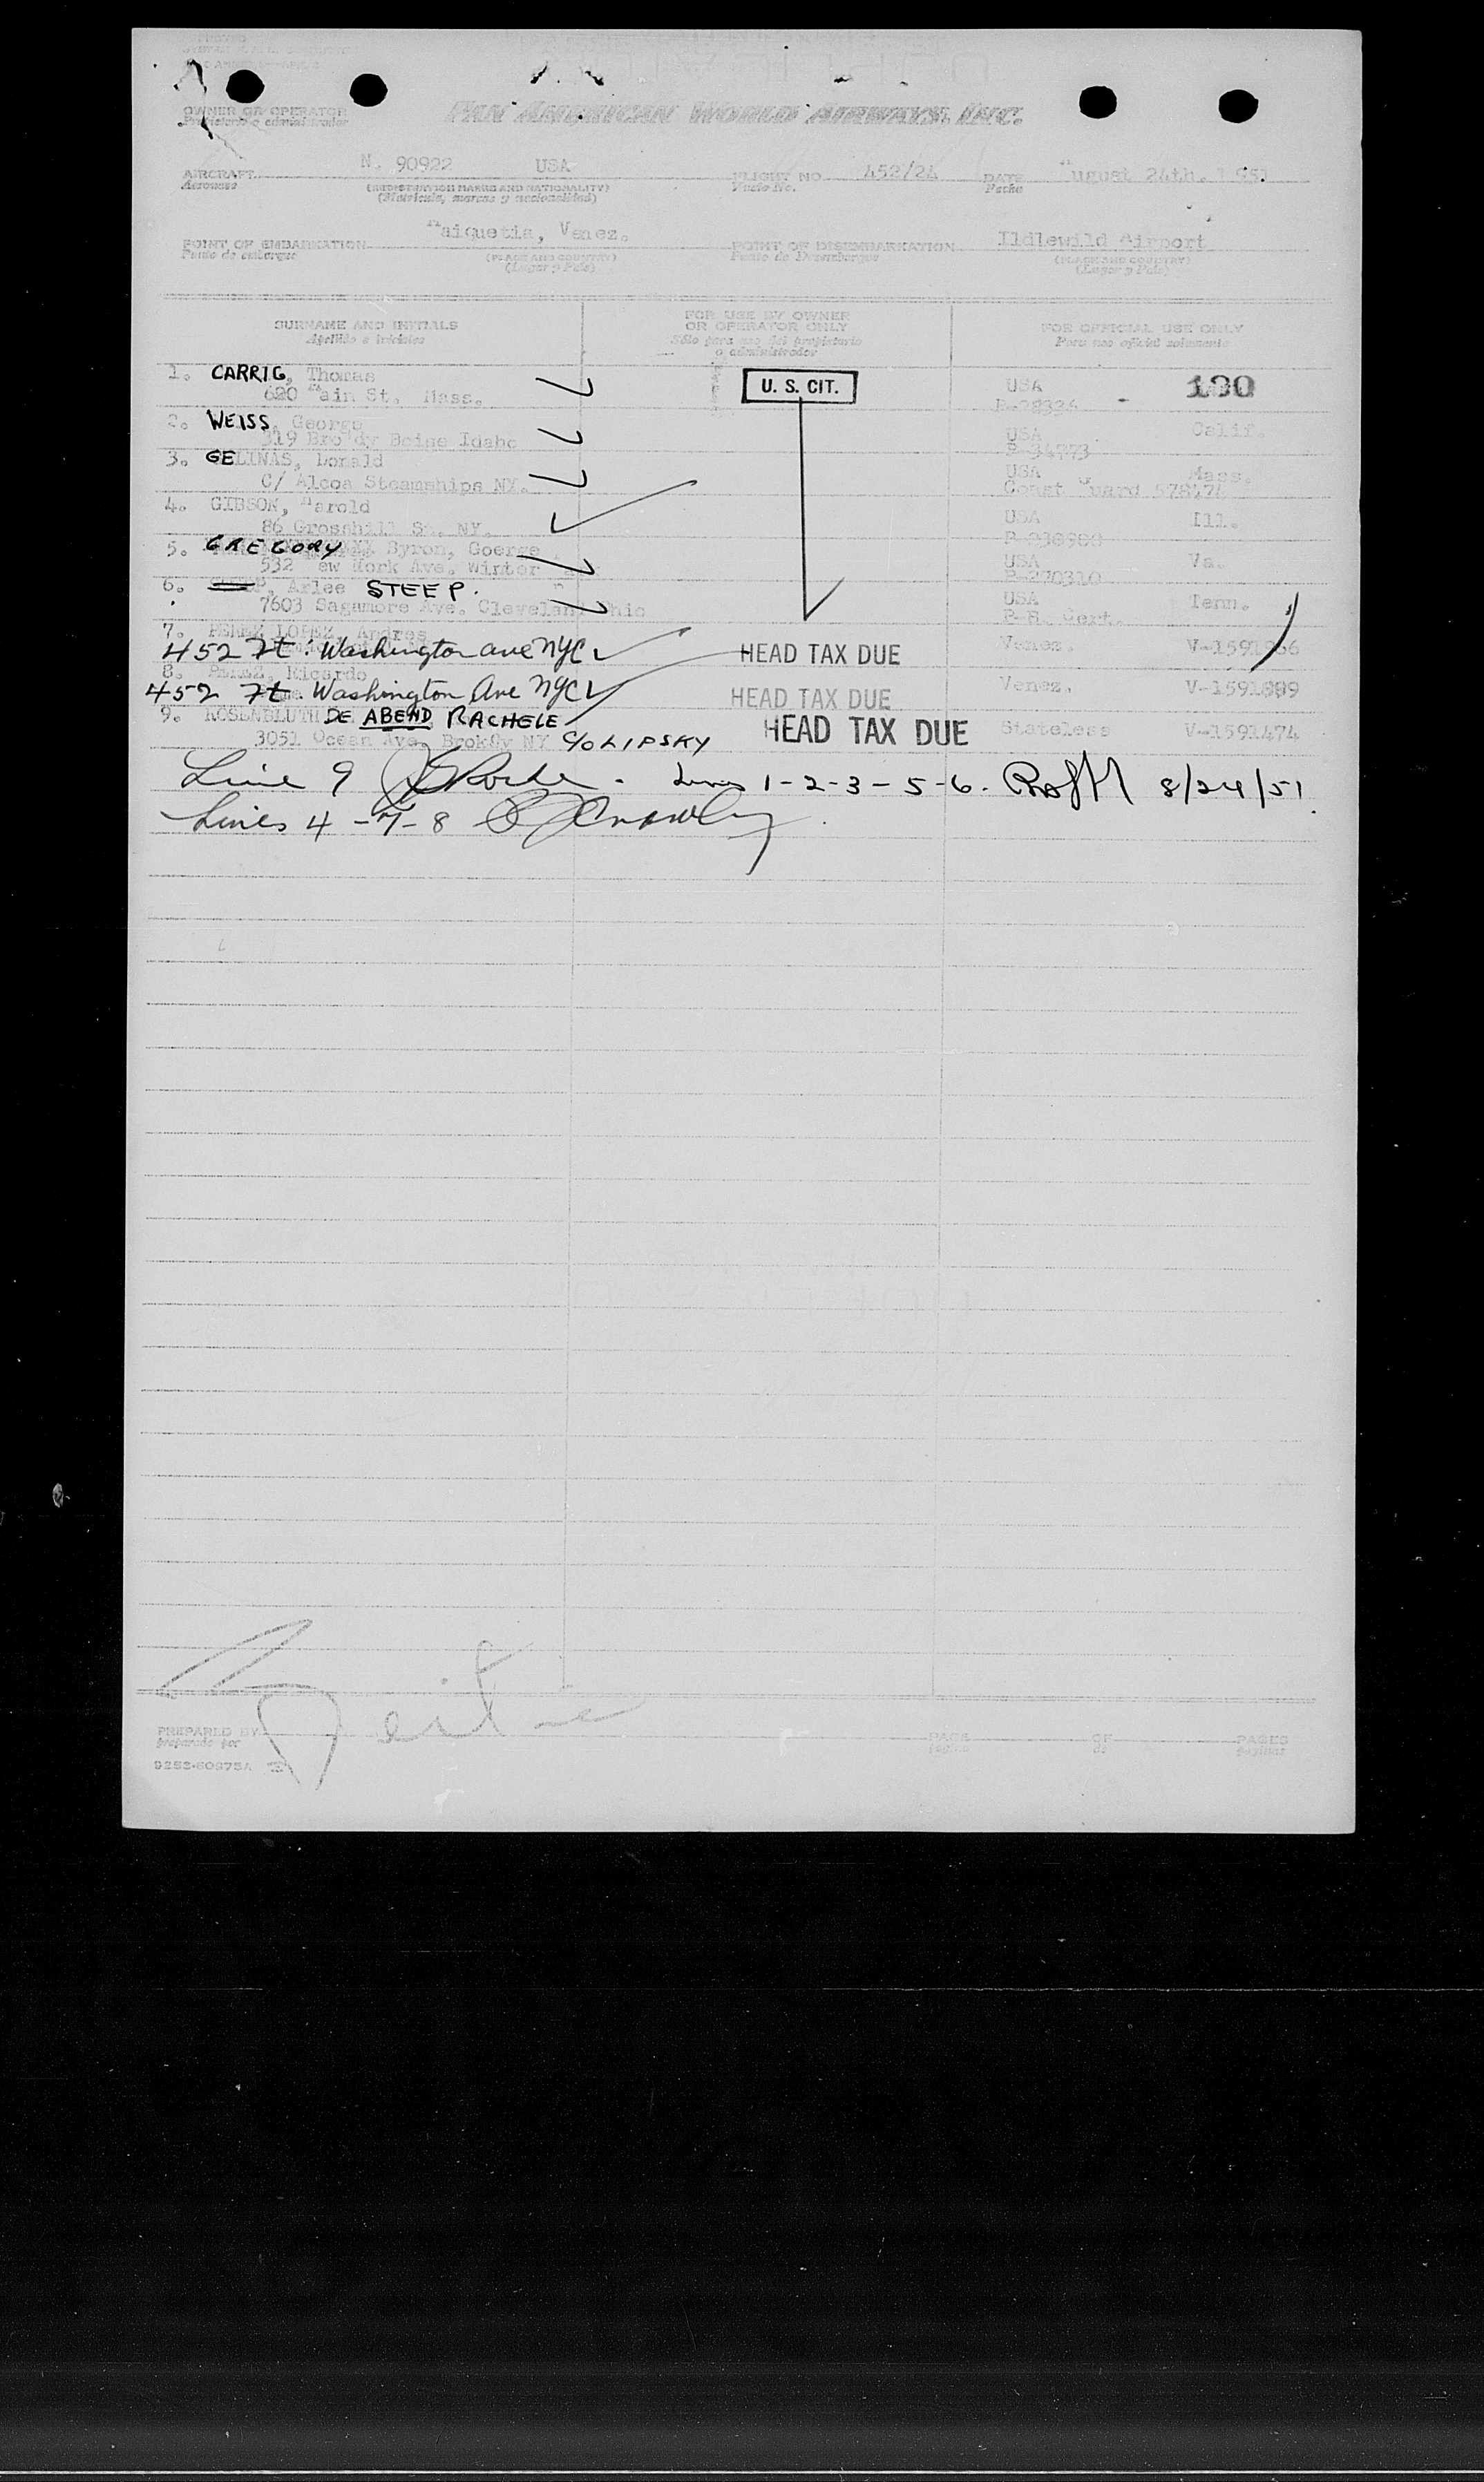 OWNER OR OPERATOR PAN AMERICAN WORLD AIRWAYS, INC.
Propietario o administrador
AIRCRAFT N. 90922 USA FLIGHT NO 452/24 DATE August 24th. 1951
Aeronave (REGISTRATION MARKS AND NATIONALITY) Vuelo No. Fecha
(Matricula, marcas y nacionalidad)
POINT OF EMBARKATION Maiquetia, Venez. POINT OF DISEMBARKATION Ildlewild Airport
Punto de embarque (PLACE AND COUNTRY) Punto de Desembarque (PLACE AND COUNTRY)
(Lugar y País) (Lugar y País)
SURNAME AND INITIALS FOR USE BY OWNER OR OPERATOR ONLY FOR OFFICIAL USE ONLY
Apellido e iniciales Sólo para uso del propietario o administrador Para uso oficial solamente
1. CARRIG, Thomas U. S. CIT. USA 130
620 Main St. Mass.
2. WEISS, George USA Calif.
319 Brody Boise Idaho P-34773
3. GELINAS, Donald USA Mass.
C/ Alcoa Steamships NY. Coast Guard 578174
4. GIBSON, Harold USA Ill.
86 Grosshill St. NY.
5. GREGORY Byron, Goerge USA Va.
532 New York Ave. Winter P-270310
6. Arlee STEEP. USA Tenn.
7603 Sagamore Ave. Cleveland Ohio B-R. Cert.
7. PEREZ LOPEZ, Andres Venez. V-1591866
452 Ft. Washington ave NYC HEAD TAX DUE
8. PEREZ, Ricardo Venez. V-1591889
452 Ft. Washington Ave NYC HEAD TAX DUE
9. ROSENBLUTH DE ABEND, RACHELE HEAD TAX DUE Stateless V-1591474
3051 Ocean Ave. Brokly NY C/O LIPSKY
Line 9 Lines 1-2-3-5-6. 8/24/51.
Lines 4-7-8
PREPARED BY PAGE OF PAGES
preparado por página de páginas
9252-60975A